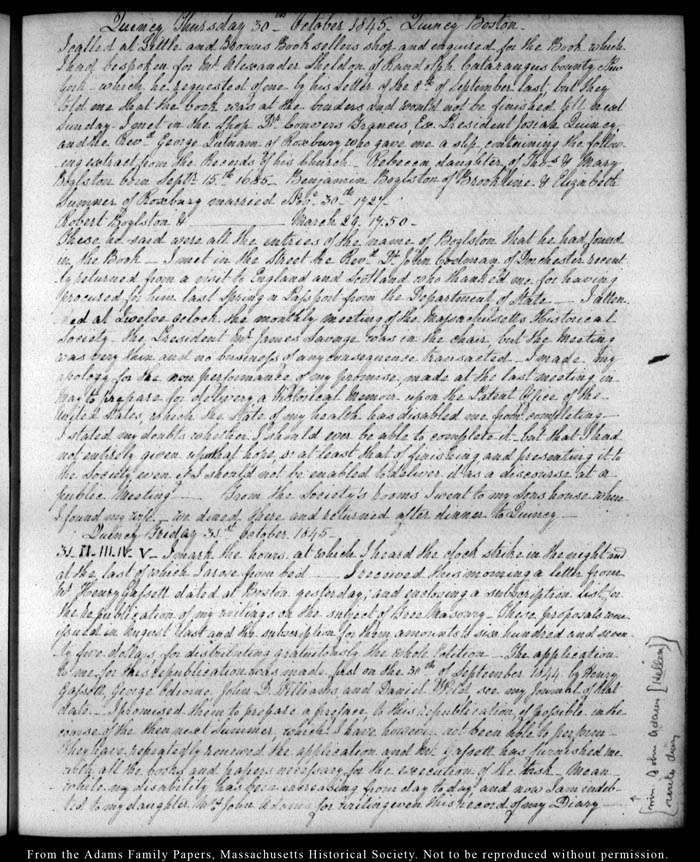 Quincy Thursday 30th October 1845. Quincy Boston.
I called at Little and Browns Book sellers shop and enquired for the Book which
I had bespoken for Mr Alexander Sheldon of Randolph Cataraugus County New
York - which he requested of me by his Letter of the 8th of September last, but they
told me that the book was at the binders and would not be finished till next
Sunday. I met in the Shop Dr Convers Francis, Ex President Josiah Quincy,
and the Revd George Putnam of Roxbury who gave me a slip containing the follow
ing extract from the Records of his Church - Rebecca, daughter of Thos & Mary
Boylston born Septr 15th 1685 - Benjamin Boylston of Brookline & Elizabeth
Sumner of Roxbury married 30th 1727.
Robert Boylston & March 29. 1750 -
These, he said were all the entries of the name of Boylston that he had found
in the Book - I met in the street the Revd Dr John Codman of Dorchester recent
ly returned from a visit to England and Scotland who thank'd me for having
procured for him last Spring a Passport from the Department of State - I atten
ded at twelve oclock the monthly meeting of the Massachusetts Historical
Society - the President Mr James Savage was in the chair, but the Meeting
was very thin and no business of any consequence transacted - I made my
apology for the non performance of my promise, made at the last meeting in
May to prepare for delivery a historical Memoir upon the Patent Office of the
United States, which the state of my health has disabled me from completing -
I stated my doubts whether I should ever be able to complete it - but that I had
not entirely given up that hope, or at least that of finishing and presenting it to
the Society even if I should not be enabled to deliver it as a discourse at a
public Meeting - From the Society's rooms I went to my Sons house where
I found my wife - we dined there and returned after dinner to Quincy -
Quincy Friday 31st October 1845 -
31. II. III. IV. V - I mark the hours at which I heard the clock strike in the night and
at the last of which I arose from bed - I received this morning a letter from
Mr Henry Gassett dated at Boston yesterday, and enclosing a subscription list for
the republication of my writings on the subject of Free Masonry - These proposals were
issued in August last and the subscription for them amounts to six hundred and seven
ty five dollars for distributing gratuitously the whole Edition - The application
to me for this republication was made first on the 30th of September 1844 by Henry
Gassett, George Odiorne, John D. Williams and Daniel Weld see my Journal of that
date - I promised them to prepare a preface to this republication, if possible in the
course of the then next Summer, which I have however not been able to perform -
They have repeatedly renewed the application and Mr Gassett has furnished me
with all the books and papers necessary for the execution of the task - Mean
while my disability has been increasing from day to day and now I am indeb
ted to my daughter Mrs John Adams for writing even this record of my Diary -
[Mrs. John Adams [Hellen]
wrote diary]
From the Adams Family Papers, Massachusetts Historical Society. Not to be reproduced without permission.